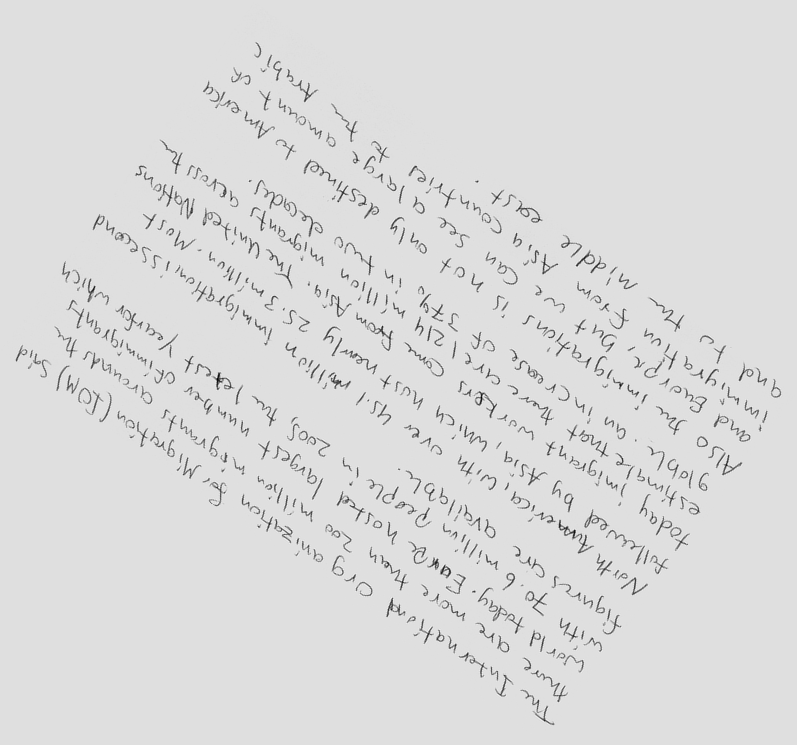 The International Organization for Migration (IOM) said
there are more than 200 million migrants arounds the
world today. Europe hosted largest number of immigrants
with 70.6 million people in 2005, the latest year for which
figures are available.
North America, with over 45.1 million immigration is second
followed by Asia, which host nearly 25.3 million. Most
today imigrant workers come from Asia. The United Nations
estimate that there are 1 214 million migrants across the
globle. an increase of 37% in two decades.
Also the immigrations is not only destined to America
and Europe, but we can see a large amount of
immigration from Asia countries to the Arabic
and to the middle east.